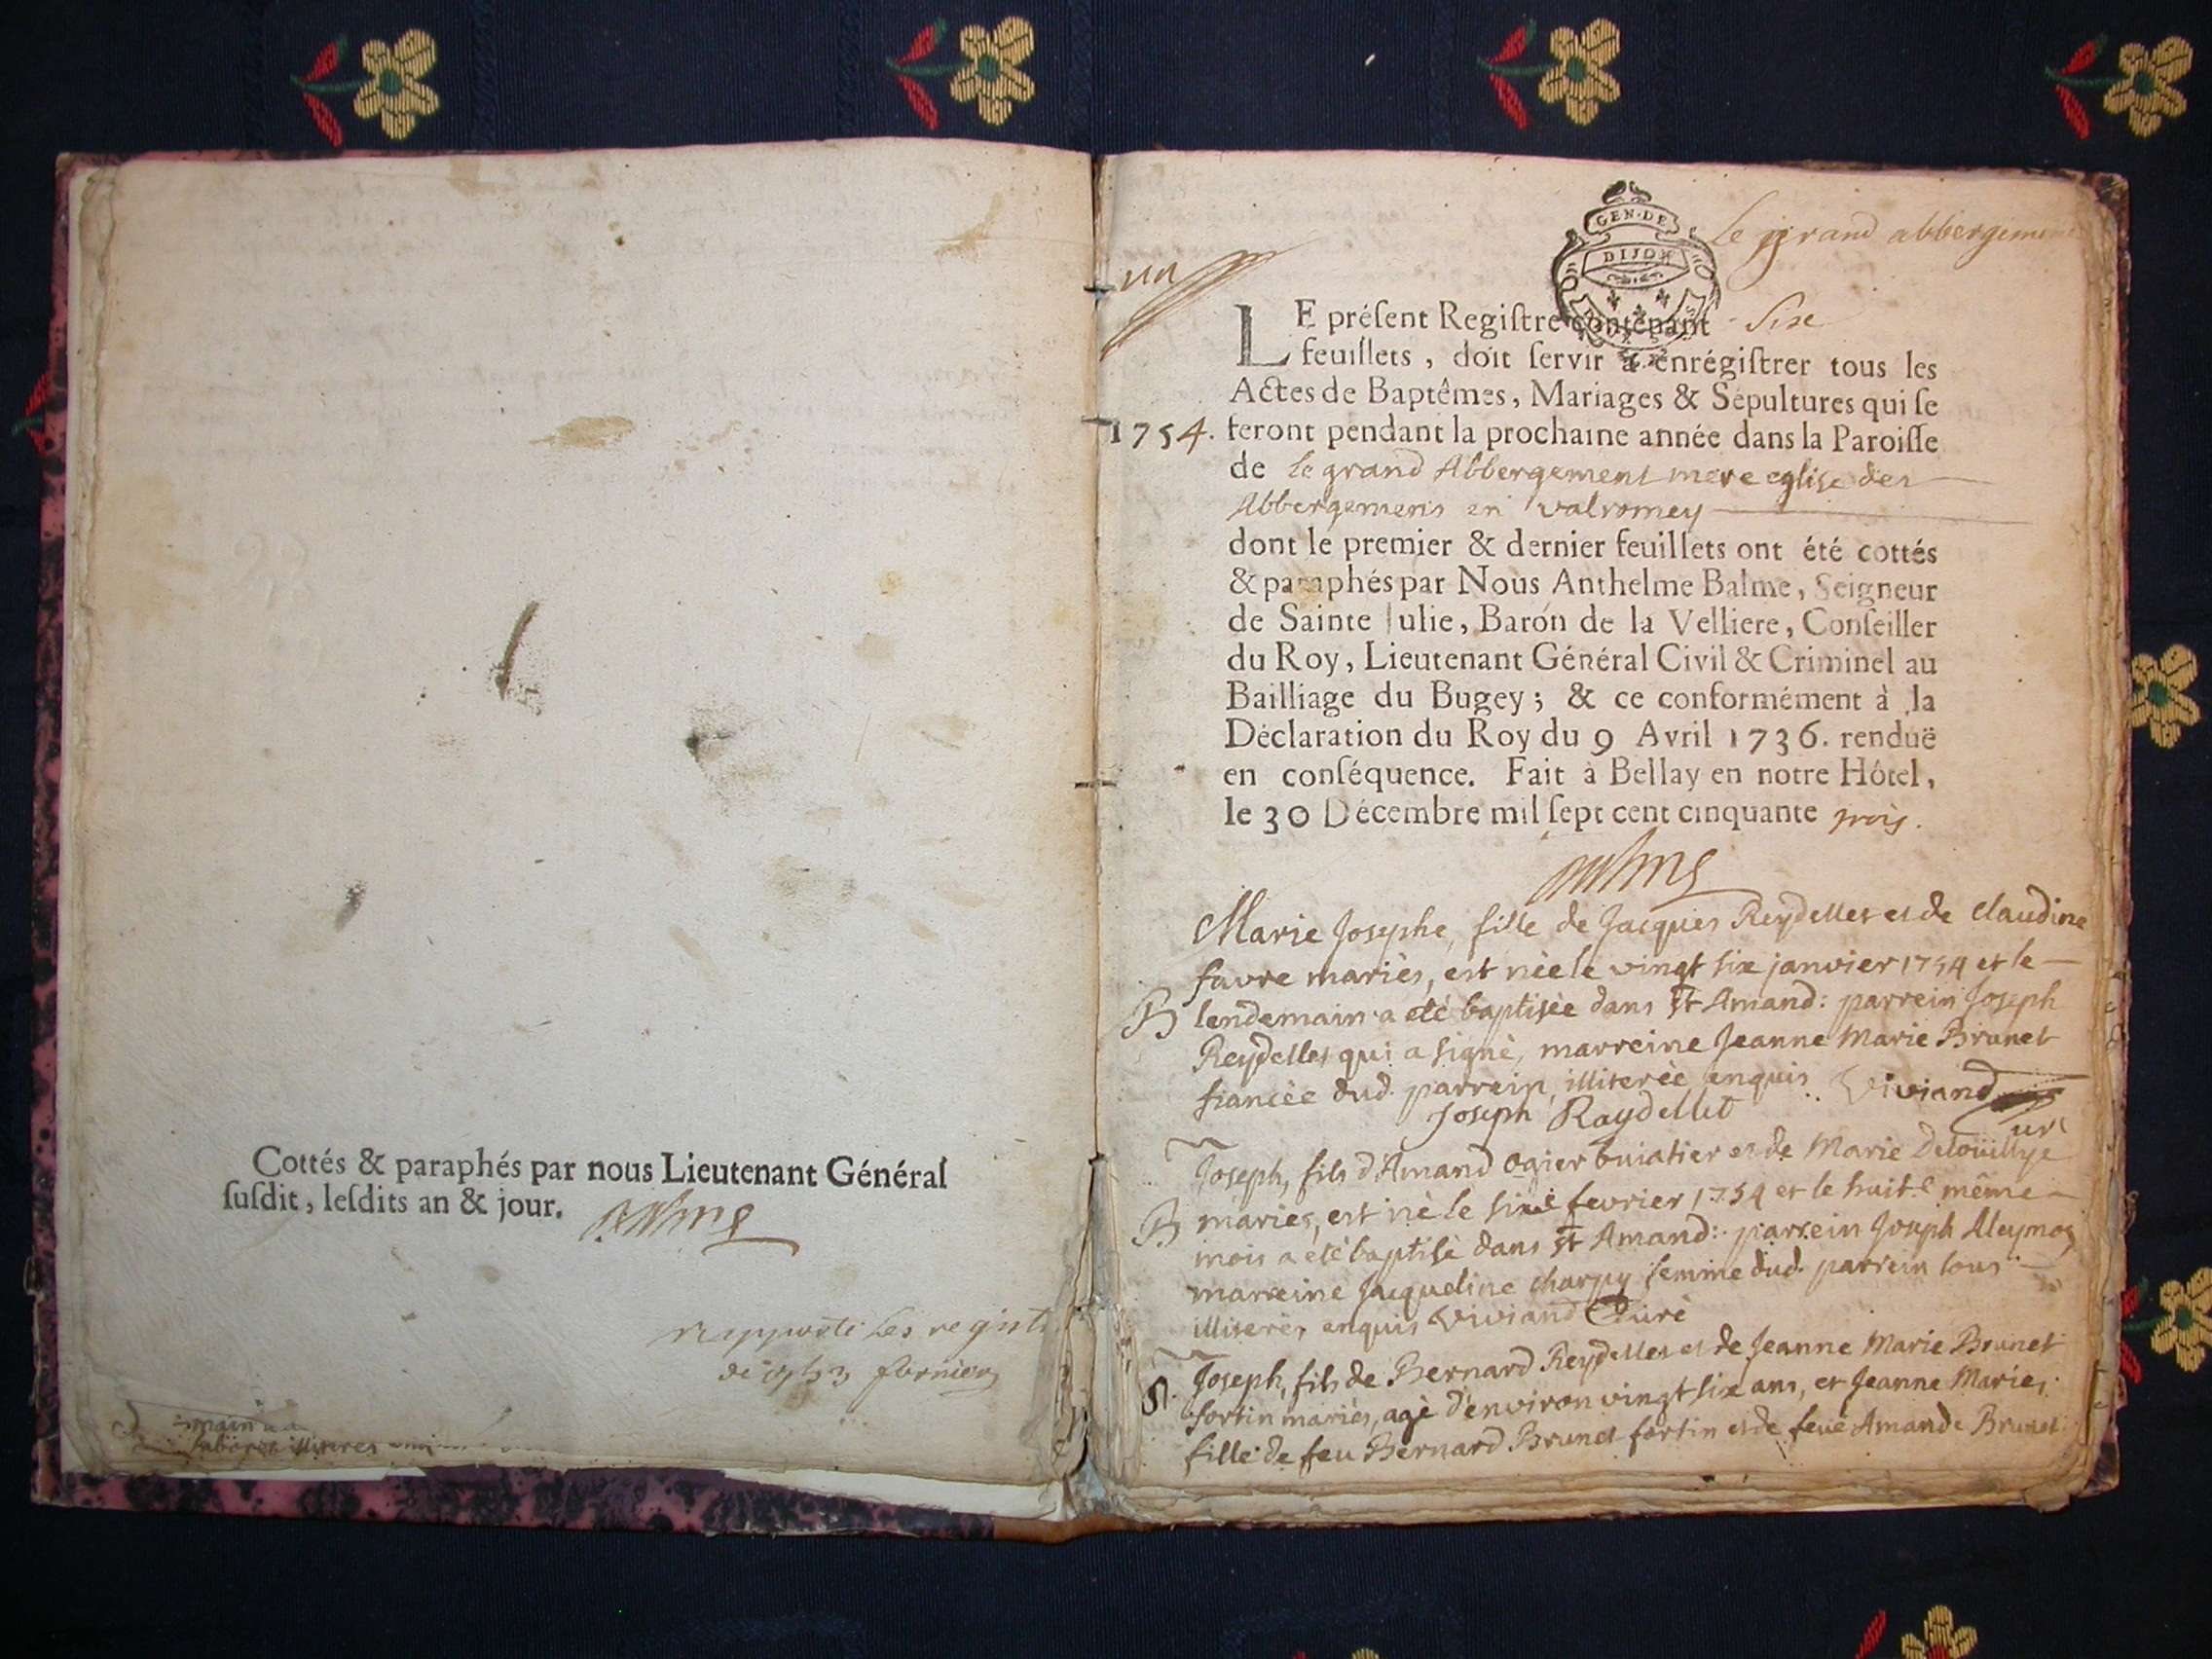 Cottés & paraphés par nous Lieutenant Général
ſuſdit, leſdits an & jour.
GEN·DE
DIJON
Le grand abbergement
un
LE préſent Regiſtre contenant Sixe
feuillets, doit ſervir à enrégiſtrer tous les
Actes de Baptêmes, Mariages & Sépultures qui ſe
1754. feront pendant la prochaine année dans la Paroiſſe
de le grand Abbergement mere eglise des
Abbergemens en valromey
dont le premier & dernier feuillets ont été cottés
& paraphés par Nous Anthelme Balme, Seigneur
de Sainte Julie, Baron de la Velliere, Conſeiller
du Roy, Lieutenant Général Civil & Criminel au
Bailliage du Bugey; & ce conformément à la
Déclaration du Roy du 9 Avril 1736. renduë
en conſéquence. Fait à Bellay en notre Hôtel,
le 30 Décembre mil ſept cent cinquante trois.
Marie Josephe, fille de Jacques Reydellet et de Claudine
favre mariés, est née le vingt six janvier 1754 et le
B lendemain a eté baptisée dans st Amand: parrein Joseph
Reydellet qui a signé, marreine Jeanne Marie Brunet
fiancée dud. parrein, illiterée enquis Viviand Curé
Joseph Raydellet
Joseph, fils d'Amand ogier buiatier et de Marie
B mariés, est né le sixe fevrier 1754 et le huit.e même
mois a eté baptisé dans st Amand: parrein Joseph
marreine Jacqueline charpy femme dud. parrein tous
illiterés enquis Viviand Curé
Joseph, fils de Bernard Reydellet et de Jeanne Marie Brunet
fortin mariés, agé d'environ vingt six ans, et Jeanne Marie,
fille de feu Bernard Brunet fortin et de feuë Amande Brunet